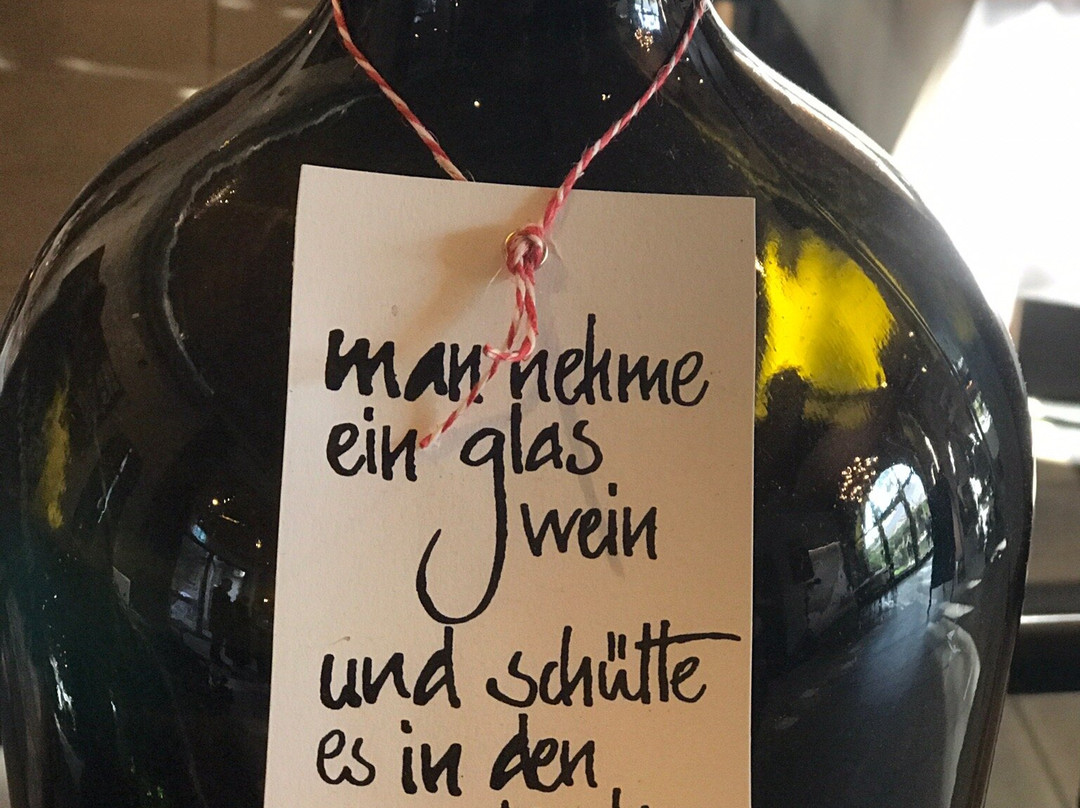 man nehme
ein glas
wein
und schütte
es in den